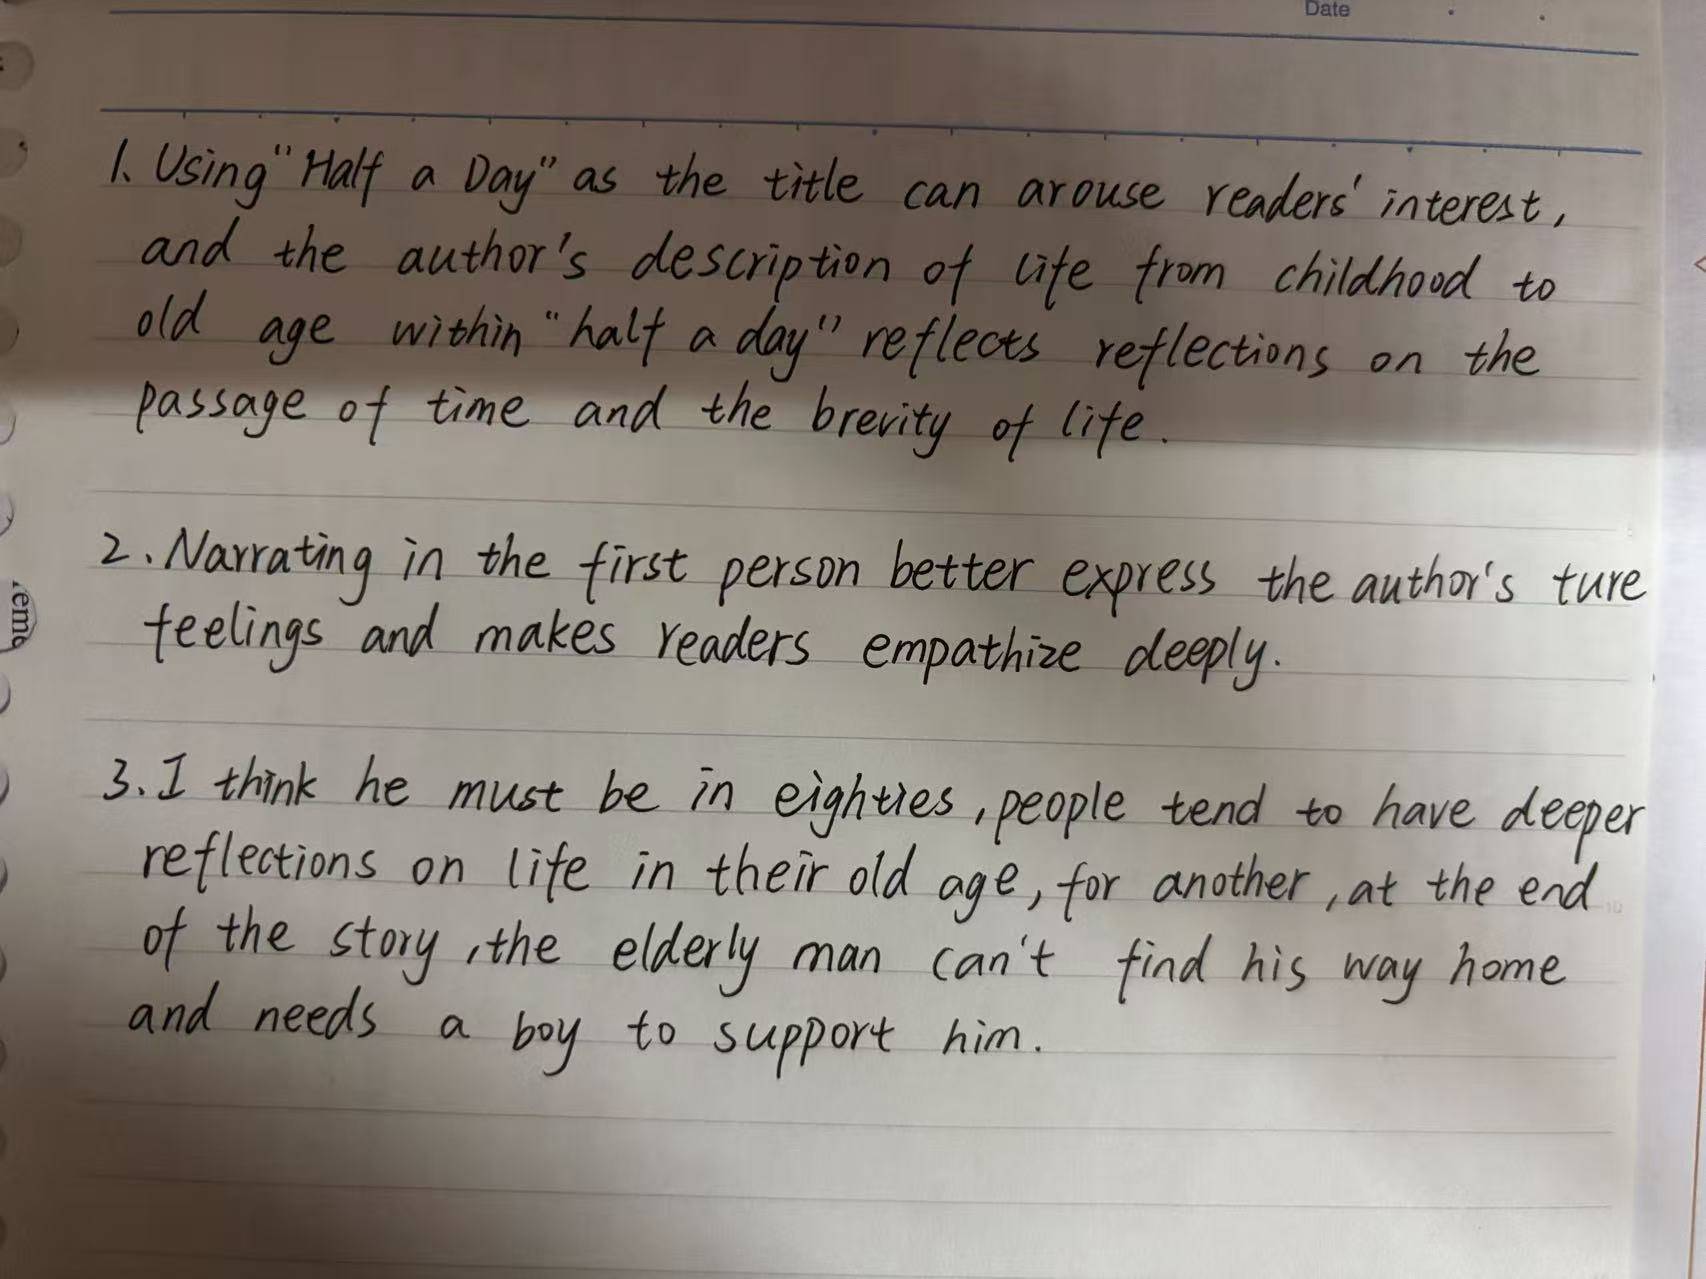 Date
1. Using "Half a Day" as the title can arouse readers' interest,
and the author's description of life from childhood to
old age within "half a day" reflects reflections on the
passage of time and the brevity of life.
2. Narrating in the first person better express the author's ture
feelings and makes readers empathize deeply.
3. I think he must be in eighties, people tend to have deeper
reflections on life in their old age, for another, at the end
of the story, the elderly man can't find his way home
and needs a boy to support him.